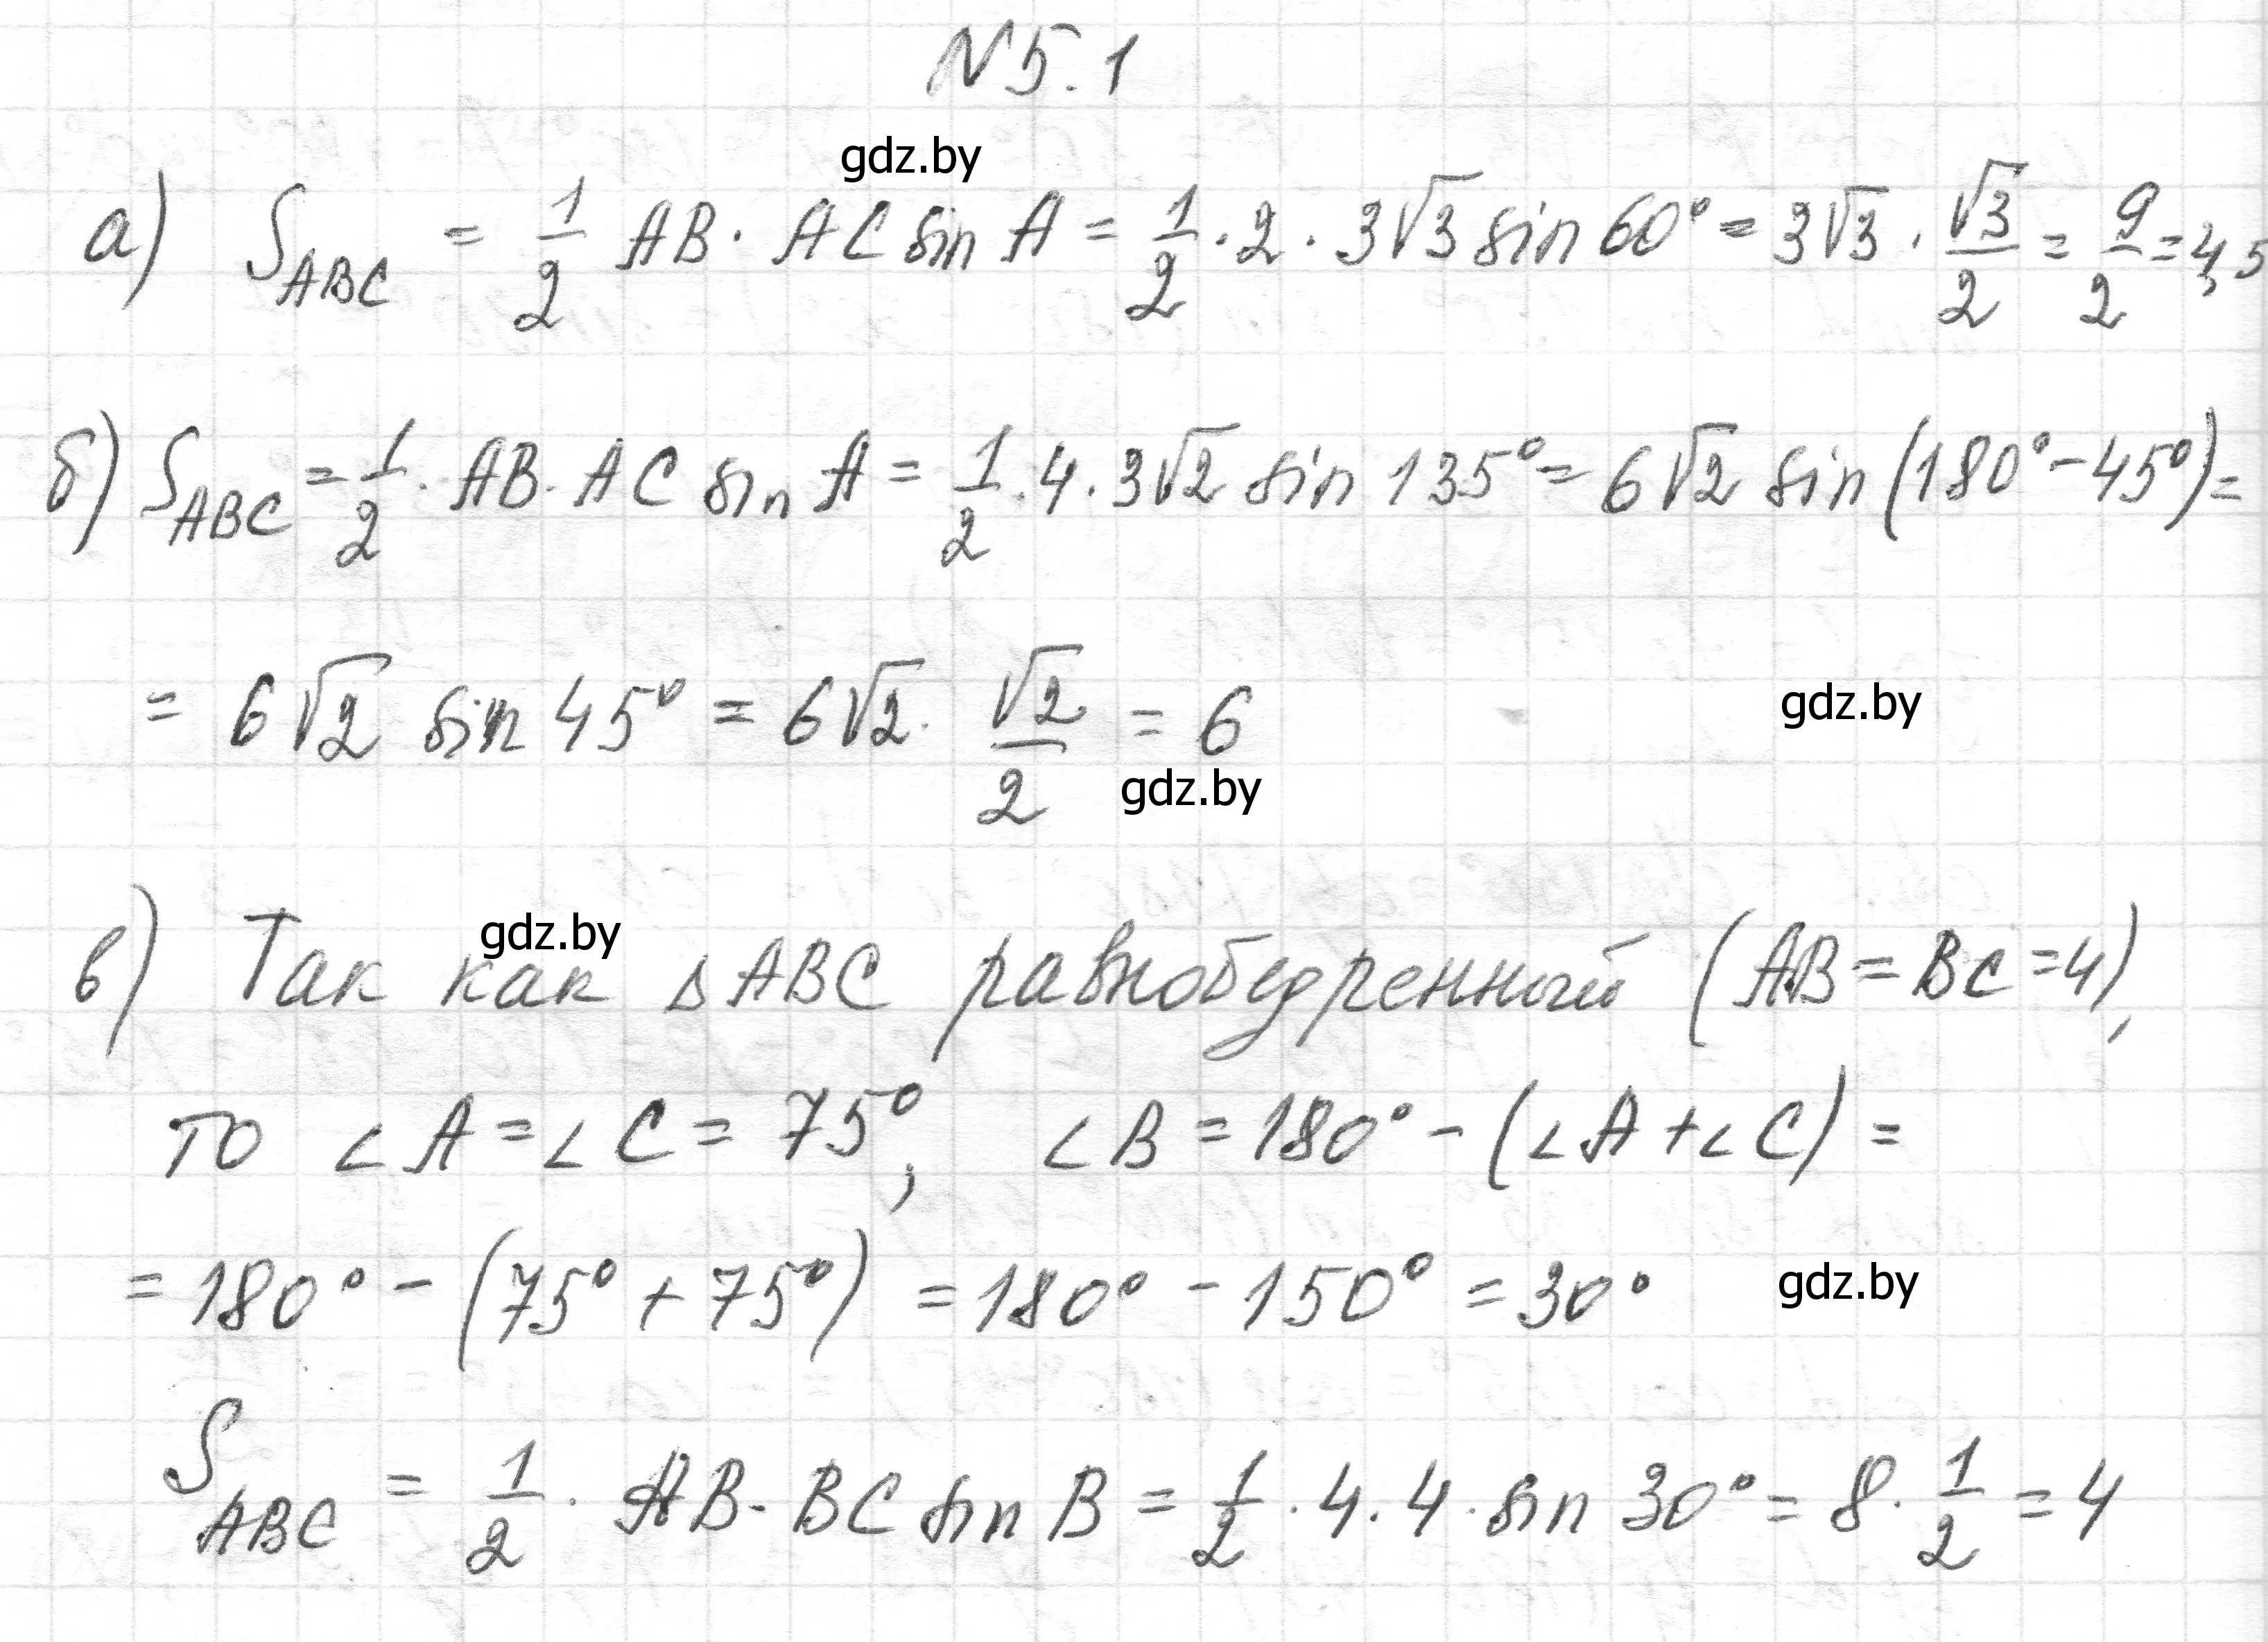 N 5.1
gdz.by
а) S_ABC = 1/2 AB · AC sin A = 1/2 · 2 · 3√3 sin 60° = 3√3 · √3/2 = 9/2 = 4,5
б) S_ABC = 1/2 · AB · AC sin A = 1/2 · 4 · 3√2 sin 135° = 6√2 sin (180° - 45°) =
= 6√2 sin 45° = 6√2 · √2/2 = 6
gdz.by
gdz.by
gdz.by
в) Так как ΔABC равнобедренный (AB = BC = 4),
то ∠A = ∠C = 75°, ∠B = 180° - (∠A + ∠C) =
= 180° - (75° + 75°) = 180° - 150° = 30°
gdz.by
S_ABC = 1/2 · AB · BC sin B = 1/2 · 4 · 4 · sin 30° = 8 · 1/2 = 4